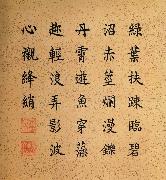 綠葉扶踈臨碧
沼赤莖爛漫鑠
丹霄遊魚穿藻
趣輕浪弄影波
心襯絳綃